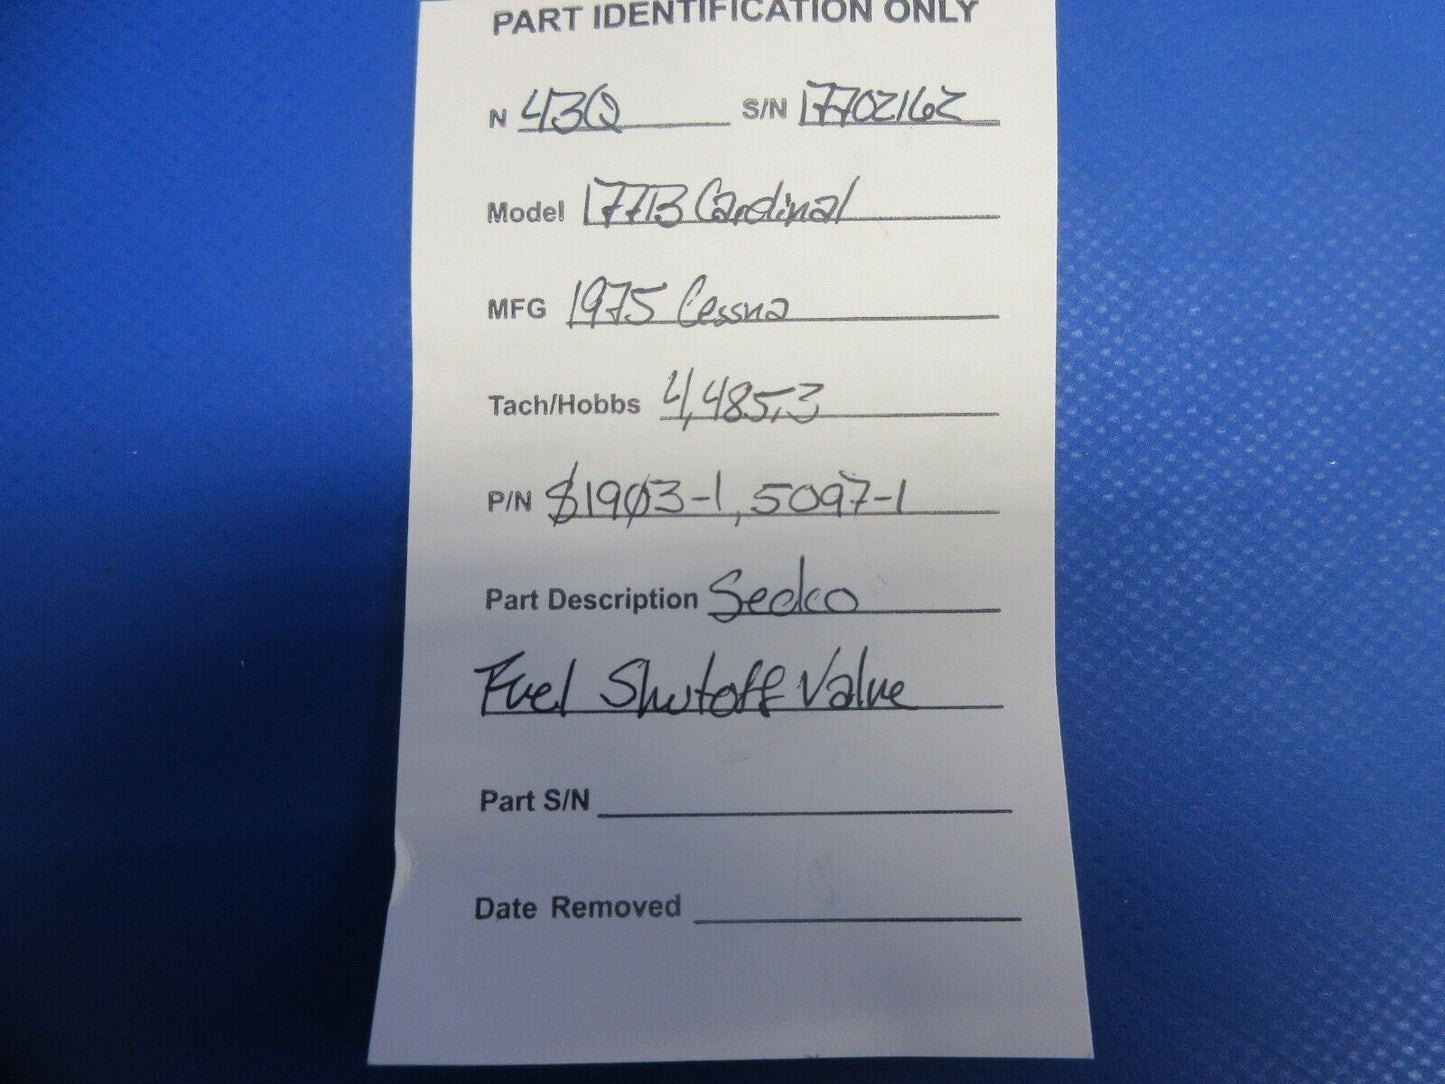 PART IDENTIFICATION ONLY
N 43Q S/N 17702162
Model 177B Cardinal
MFG 1975 Cessna
Tach/Hobbs 4,485.3
P/N S1903-1, 5097-1
Part Description Sedco
Fuel Shutoff Valve
Part S/N
Date Removed